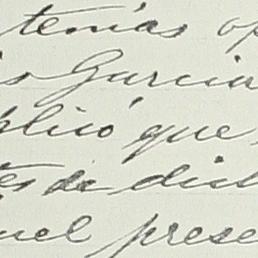 tenías op
s Garcia
plicó que
tes de dis
uel prese